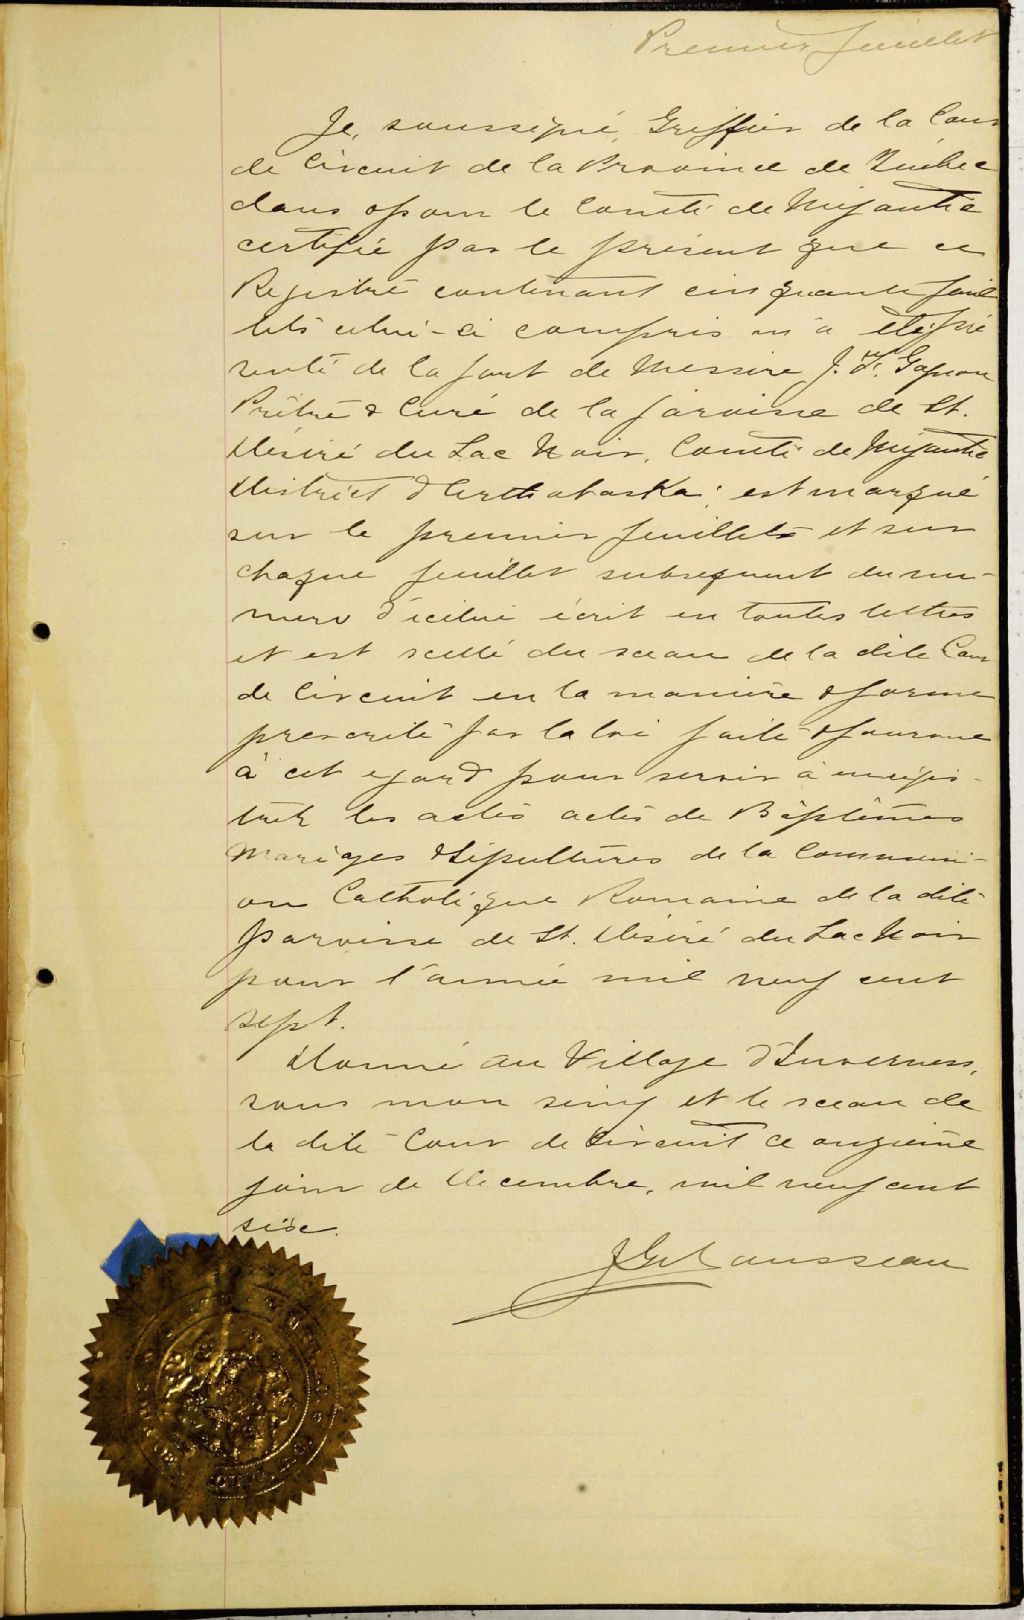 Premier feuillet
Je, soussigné, Greffier de la Cour
de Circuit de la Province de Québec
dans & pour le Comté de Mégantic
certifie par le présent que ce
Registre contenant cinquante feuil
lets celui-ci compris m'a été pré
senté de la part de Messire J. Gagnon
Prêtre & Curé de la paroisse de St.
Désiré du Lac Noir, Comté de Mégantic
District d'Arthabaska; est marqué
sur le premier feuillet et sur
chaque feuillet subsequent du nu-
mero d'icelui écrit en toutes lettres
et est scellé du sceau de la dite Cour
de Circuit en la manière & forme
prescrite par la loi faite & pourvue
à cet egard pour servir à enregis-
trer les actes actes de Baptêmes
Mariages & Sépultures de la Communi-
on Catholique Romaine de la dite
paroisse de St. Désiré du Lac Noir
pour l'année mil neuf cent
sept.
Donné au Village d'Inverness,
sous mon seing et le sceau de
la dite Cour de Circuit ce onzième
jour de Decembre, mil neuf cent
six.
Rousseau